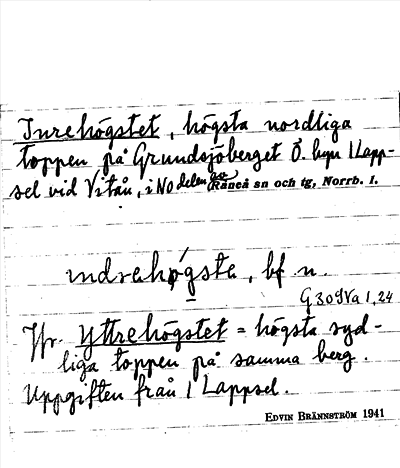 Inrehögstet, högsta nordliga
toppen på Grundsjöberget Ö. byn 1 Lapp-
sel vid Vitån, i NO delen av Råneå sn och tg, Norrb. l.
ındrahǫ́gsta, bf n.
G 309Va 1,24
Jfr. Yttrehögstet = högsta syd-
liga toppen på samma berg.
Uppgiften från 1 Lappsel.
EDVIN BRÄNNSTRÖM 1941